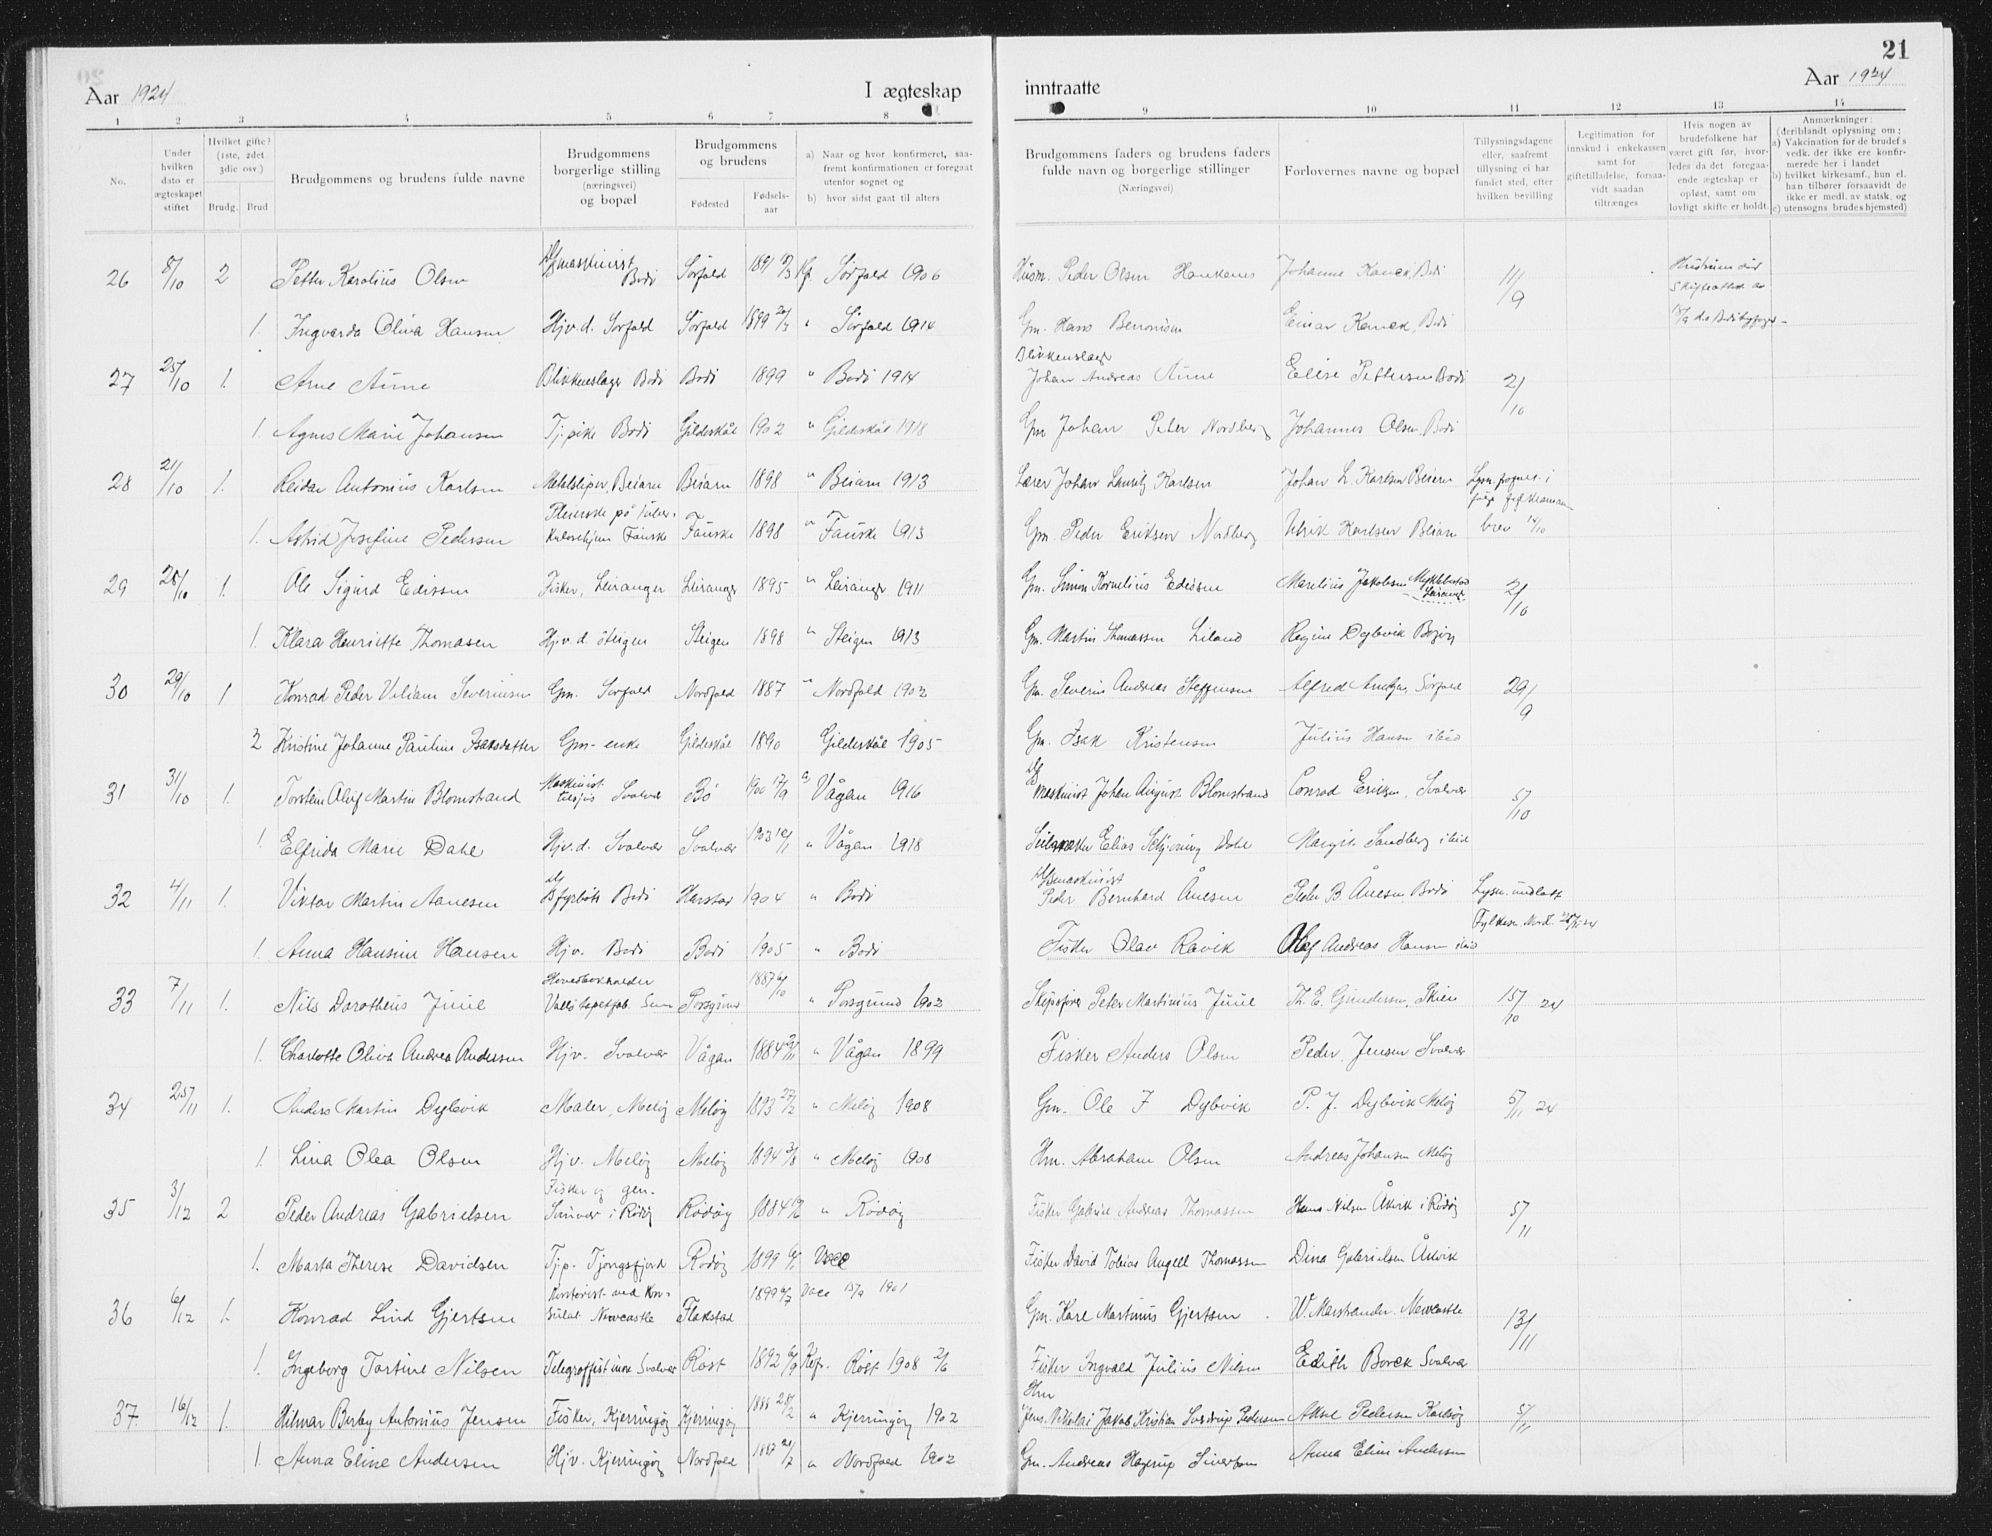 21
Aar 1924 I ægteskap inntraatte Aar 1924
1 2 3 4 5 6 7 8 9 10 11 12 13 14
No.
Under hvilken dato er ægteskapet stiftet
Hvilket gifte? (1ste, 2det 3die osv.)
Brudg. Brud
Brudgommens og brudens fulde navne
Brudgommens borgerlige stilling (næringsvei) og bopæl
Brudgommens og brudens
Fødested
Fødsels-aar
a) Naar og hvor konfirmeret, saafremt konfirmationen er foregaat utenfor sognet og
b) hvor sidst gaat til alters
Brudgommens faders og brudens faders fulde navn og borgerlige stillinger (Næringsvei)
Forlovernes navne og bopæl
Tillysningsdagene eller, saafremt tillysning ei har fundet sted, efter hvilken bevilling
Legitimation for innskud i enkekassen samt for giftetilladelse, forsaavidt saadan tiltrænges
Hvis nogen av brudefolkene har været gift før, hvorledes da det foregaaende ægteskap er opløst, samt om lovligt skifte er holdt.
Anmærkninger: (deriblandt oplysning om:
a) Vakcination for de brudef s vedk. der ikke ere konfirmerede her i landet
b) hvilket kirkesamf., hun el. han tilhører forsaavidt de ikke er medl. av statsk. og
c) utensogns brudes hjemsted)
26 8/10 2 Petter Karolius Olsen maskinist Bodø Sørfold 1891 Kf. Sørfold 1906 Husm. Peder Olsen Johanne Bodø 11/9
1. Ingvarda Oliva Hansen Hjv. d. Sørfold Sørfold 1899 " Sørfold 1914 Gm. Hans Benonisen Einar Bodø
27 25/10 1. Arne Aune Blikkenslager Bodø Bodø 1899 " Bodø 1914 Blikkenslager Johan Andreas Aune Elise Pettersen Bodø 2/10
1. Agnes Marie Johansen Tj. pike Bodø Gildeskål 1902 " Gildeskål 1918 Gm Johan Peter Nordberg Johannes Olsen Bodø
28 21/10 1. Reidar Antonius Karlsen Metalsliper, Beiarn Beiarn 1898 " Beiarn 1913 Lærer Johan Lauritz Karlsen Johan L. Karlsen Beiarn
1. Astrid Josefine Pedersen Pleierske på Tuberkulosehjem Fauske Fauske 1898 " Fauske 1913 Gm. Peder Eriksen Nordberg Ulrik Karlsen Beiarn brev 14/10
29 25/10 1. Ole Sigurd Edissen Fisker, Leiranger Leiranger 1895 " Leiranger 1911 Gm. Simon Kornelius Edissen Marelius Jakobsen Myklebostad Leiranger 2/10
1. Klara Henriette Thomasen Hjv. d. Steigen Steigen 1898 " Steigen 1913 Gm. Martin Thomassen Liland Regine Dybvik
30 29/10 1 Konrad Peder Viliam Severinsen Gm. Sørfold Nordfold 1887 " Nordfold 1902 Gm. Severin Andreas Steffensen Alfred Sørfold 29/9
2 Kristine Johanne Pauline Isaksdatter Gm-enke Gildeskål 1890 Gildeskål 1905 Gm. Isak Kristensen Julius Hansen ibid
31 31/10 1. Torstein Oluf Martin Blomstrand Maskinist Svolvær Bø 1900 17/9 a) Vågan 1916 maskinist Johan August Blomstrand Conrad Eriksen, Svolvær 5/10
1. Elfrida Marie Dahl Hjv. d. Svolvær Svolvær 1903 " Vågan 1918 Seilmaker Elias Schjøning Dahl Margit Sandberg ibid
32 4/11 1. Viktor Martin Aanesen fyrbøter Bodø Harstad 1904 " Bodø maskinist Peder Bernhard Ånesen Peder B. Ånesen Bodø Lysn. undlatt
1. Anna Hansine Hansen Hjv. Bodø Bodø 1905 " Bodø Fisker Olav Ravik Olaf Andreas Hansen ibid
33 7/11 1. Nils Dorotheus Juul Hovedbokholder Porsgrund 1887 " Porsgrund 1902 Skipsfører Peter Martinius Juul Th. E. Gundersen, Skien 15/10 24
1. Charlotte Oliva Andrea Andersen Hjv. Svolvær Vågan 1884 " Vågan 1899 Fisker Anders Olsen Peder Jensen Svolvær
34 25/11 1. Anders Martin Dybvik Maler, Meløy Meløy 1893 27/2 " Meløy 1908 Gm. Ole J Dybvik P. J. Dybvik Meløy 5/11 24
1. Lina Olea Olsen Hjv. Meløy Meløy 1894 3/8 " Meløy 1908 Hm. Abraham Olsen Andreas Johansen Meløy
35 3/12 2 Peder Andreas Gabrielsen Fisker og i Rødøy Rødøy 1884 " Rødøy Fisker Gabriel Andreas Thomassen Hans Nilsen Åkvik i Rødøy 5/11
1. Marta Therese Davidsen Tj.p. Tjongsfjord Rødøy 1899 Fisker David Tobias Angell Thomassen Dina Gabrielsen Åkvik
36 6/12 1. Konrad Lind Gjertsen Kontorist ved Konsulat Newcastle Flakstad 1899 Gm. Karl Martinius Gjertsen W. Marstrander. Newcastle 13/11
1. Ingeborg Tortine Nilsen Telegraffistinne Svolvær Røst 1892 Kfr. Røst 1908 2/6 Fisker Ingvald Julius Nilsen Edith Borck Svolvær
37. 16/12 1. Hilmar Berby Antonius Jensen Fisker, Kjerringøy Kjerringøy 1888 28/2 " Kjerringøy 1902 Hm Jens Nikolai Jakob Kristian Sverdrup Pedersen Aksel Pedersen 5/11
1. Anna Eline Andersen Hjv. Kjerringøy Nordfold 1887 " Nordfold 1902 Gm. Andreas Hagerup Sivertsen Anna Eline Andersen